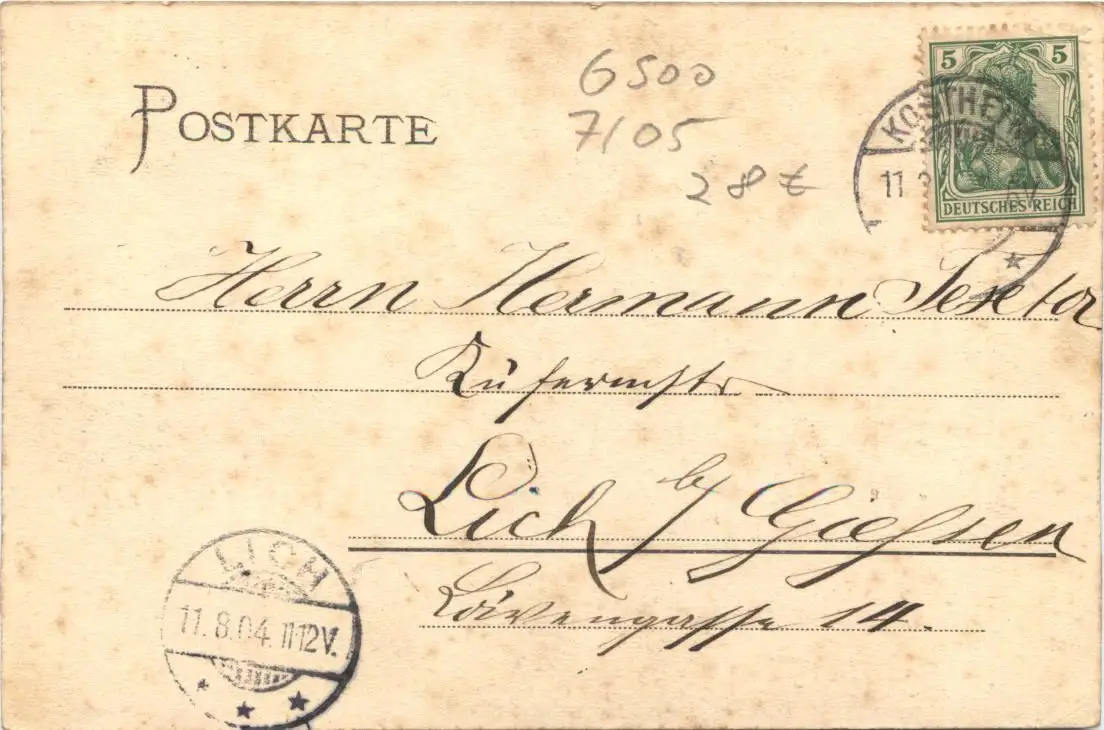 POSTKARTE
6500
7/05
28 €
5 5
KOSTHEIM
11
DEUTSCHES REICH
Herrn Hermann Textor
Küfermstr
Lich b/ Giessen
Löwengasse 14.
LICH
11.8.04. 11-12V.